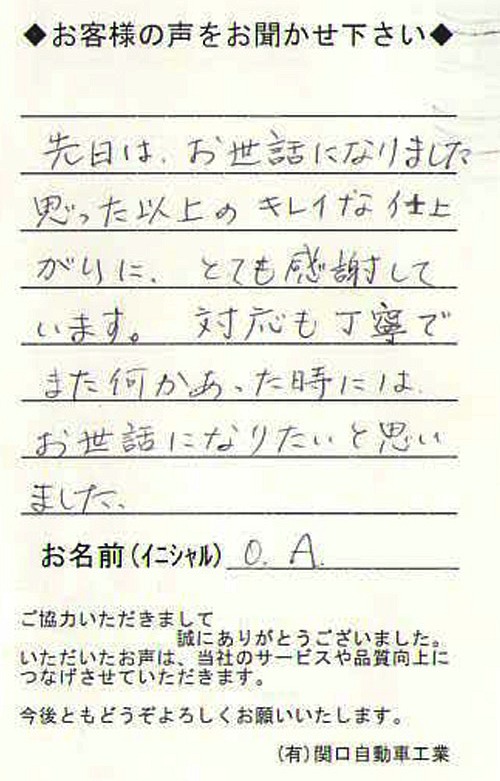 ◆お客様の声をお聞かせ下さい◆
先日は、お世話になりました
思った以上の キレイな 仕上
がりに、とても感謝して
います。 対応も丁寧で
また何かあった時には、
お世話になりたいと思い
ました。
お名前(イニシャル) O. A.
ご協力いただきまして
誠にありがとうございました。
いただいたお声は、当社のサービスや品質向上に
つなげさせていただきます。
今後ともどうぞよろしくお願いいたします。
(有)関口自動車工業